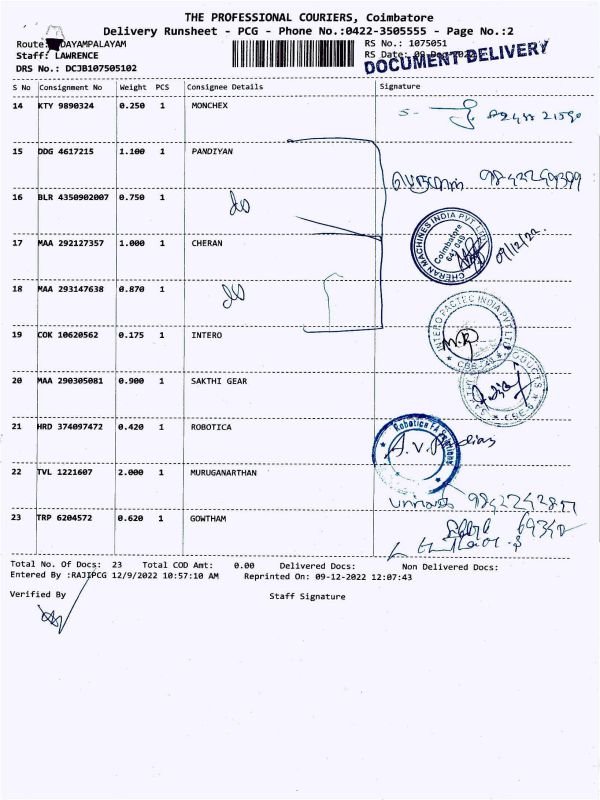 THE PROFESSIONAL COURIERS, Coimbatore
Delivery Runsheet - PCG - Phone No.:0422-3505555 - Page No.:2
Route: DAYAMPALAYAM
RS No.: 1075051
Staff: LAWRENCE
RS Date:
DOCUMENT DELIVERY
DRS No.: DCJB107505102
S No Consignment No Weight PCS Consignee Details Signature
14 KTY 9890324 0.250 1 MONCHEX
15 DDG 4617215 1.100 1 PANDIYAN
16 BLR 4350902007 0.750 1
17 MAA 292127357 1.000 1 CHERAN
CHERAN MACHINES INDIA PVT LTD
Coimbatore
641 048
09/12/22
18 MAA 293147638 0.870 1
19 COK 10620562 0.175 1 INTERO
INTERO PACTEC INDIA PVT LTD
20 MAA 290305081 0.900 1 SAKTHI GEAR
21 HRD 374097472 0.420 1 ROBOTICA
Robotica FA Solutions
22 TVL 1221607 2.000 1 MURUGANARTHAN
23 TRP 6204572 0.620 1 GOWTHAM
Total No. Of Docs: 23 Total COD Amt: 0.00 Delivered Docs: Non Delivered Docs:
Entered By :RAJIPCG 12/9/2022 10:57:10 AM Reprinted On: 09-12-2022 12:07:43
Verified By Staff Signature